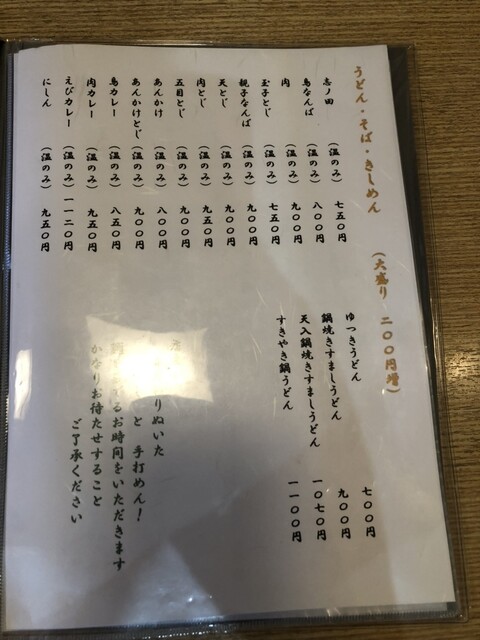 うどん・そば・きしめん (大盛り 二〇〇円増)
志ノ田 (温のみ) 七五〇円
鳥なんば (温のみ) 八〇〇円
肉 (温のみ) 九〇〇円
玉子とじ (温のみ) 七五〇円
親子なんば (温のみ) 九〇〇円
天とじ (温のみ) 九〇〇円
肉とじ (温のみ) 九五〇円
五目とじ (温のみ) 九〇〇円
あんかけ (温のみ) 八〇〇円
あんかけとじ (温のみ) 九〇〇円
鳥カレー (温のみ) 八五〇円
肉カレー (温のみ) 九五〇円
えびカレー (温のみ) 一一二〇円
にしん (温のみ) 九五〇円
ゆつきうどん 七〇〇円
鍋焼きすましうどん 九〇〇円
天入鍋焼きすましうどん 一〇七〇円
すきやき鍋うどん 一一〇〇円
りぬいた
と 手打めん!
るお時間をいただきます
かなりお待たせすること
ご了承ください